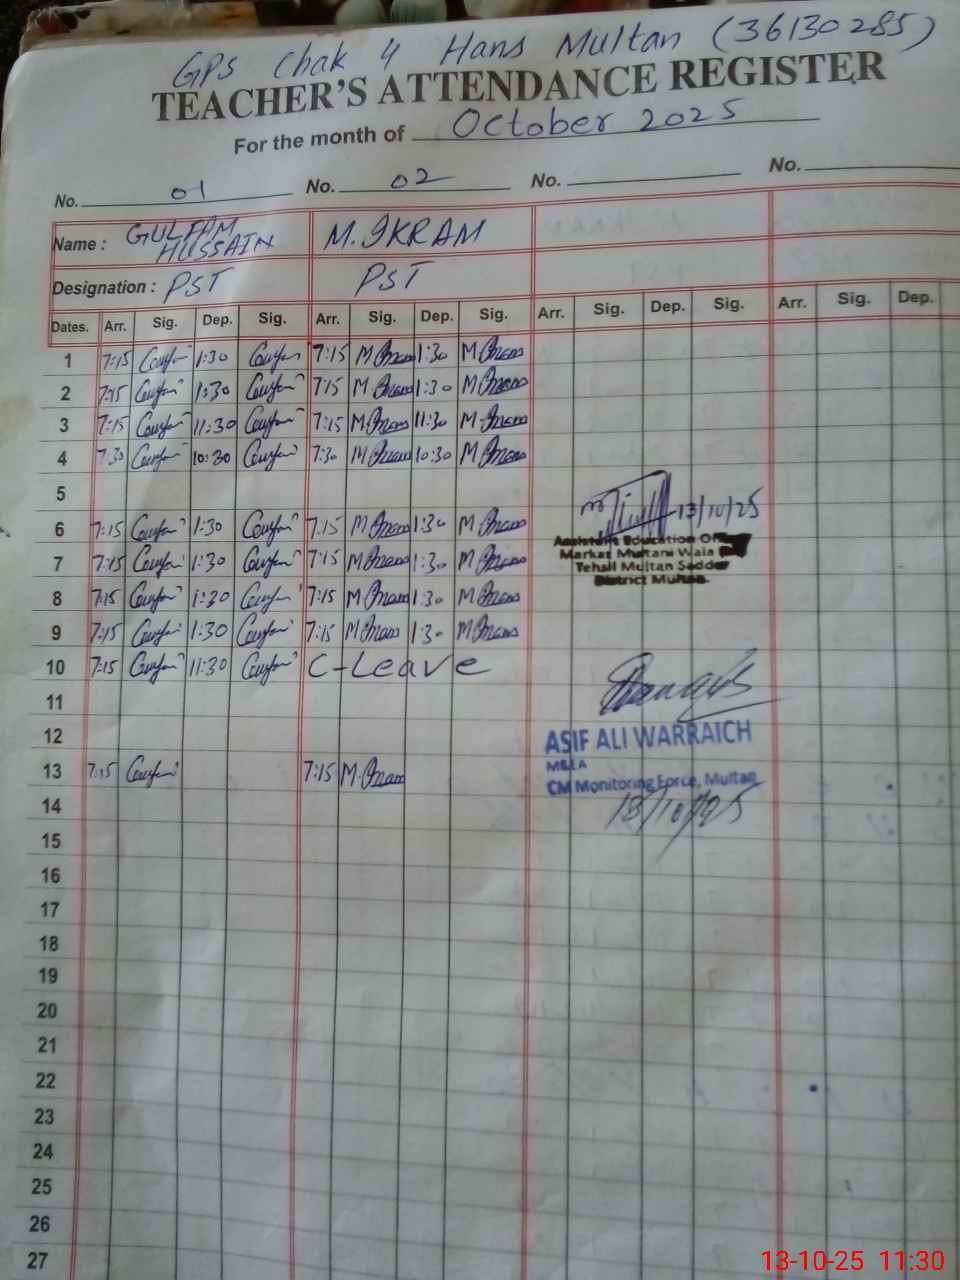 GPS Chak 4 Hans Multan (36130285)
TEACHER'S ATTENDANCE REGISTER
For the month of October 2025
No. 01 No. 02 No. No.
Name : GULFAM HUSSAIN M. IKRAM
Designation : PST PST
Dates. Arr. Sig. Dep. Sig. Arr. Sig. Dep. Sig. Arr. Sig. Dep. Sig. Arr. Sig. Dep.
1 7:15 1:30 7:15 1:30
2 7:15 1:30 7:15 1:30
3 7:15 11:30 7:15 11:30
4 7:30 10:30 7:30 10:30
5
13/10/25
6 7:15 1:30 7:15 1:30
Assistant Education
Markaz Multani Wala
7 7:15 1:30 7:15 1:30
Tehsil Multan Sadder
District Multan.
8 7:15 1:30 7:15 1:30
9 7:15 1:30 7:15 1:30
10 7:15 11:30 C-Leave
11
12
ASIF ALI WARRAICH
MEA
13 7:15 7:15
CM Monitoring Force, Multan
13/10/25
14
15
16
17
18
19
20
21
22
23
24
25
26
27
13-10-25 11:30